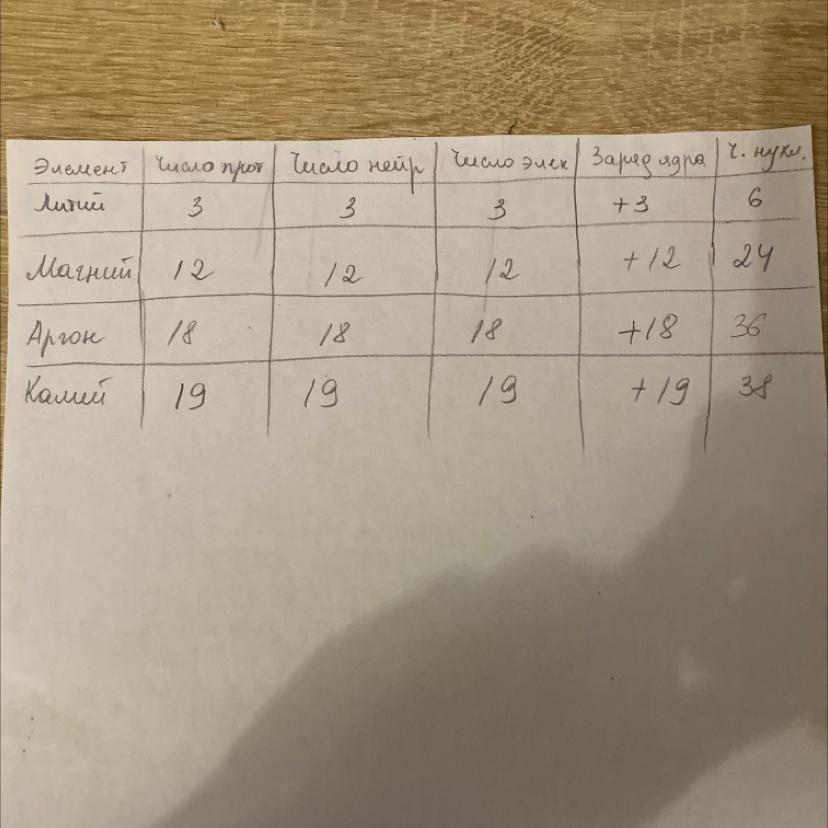 Элемент Число прот Число нейр Число элек Заряд ядра Ч. нукл.
Литий 3 3 3 +3 6
Магний 12 12 12 +12 24
Аргон 18 18 18 +18 36
Калий 19 19 19 +19 38